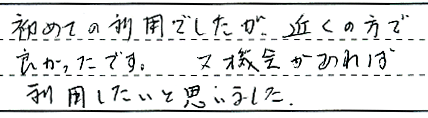 初めての利用でしたが、近くの方で
良かったです。 又機会があれば
利用したいと思いました.